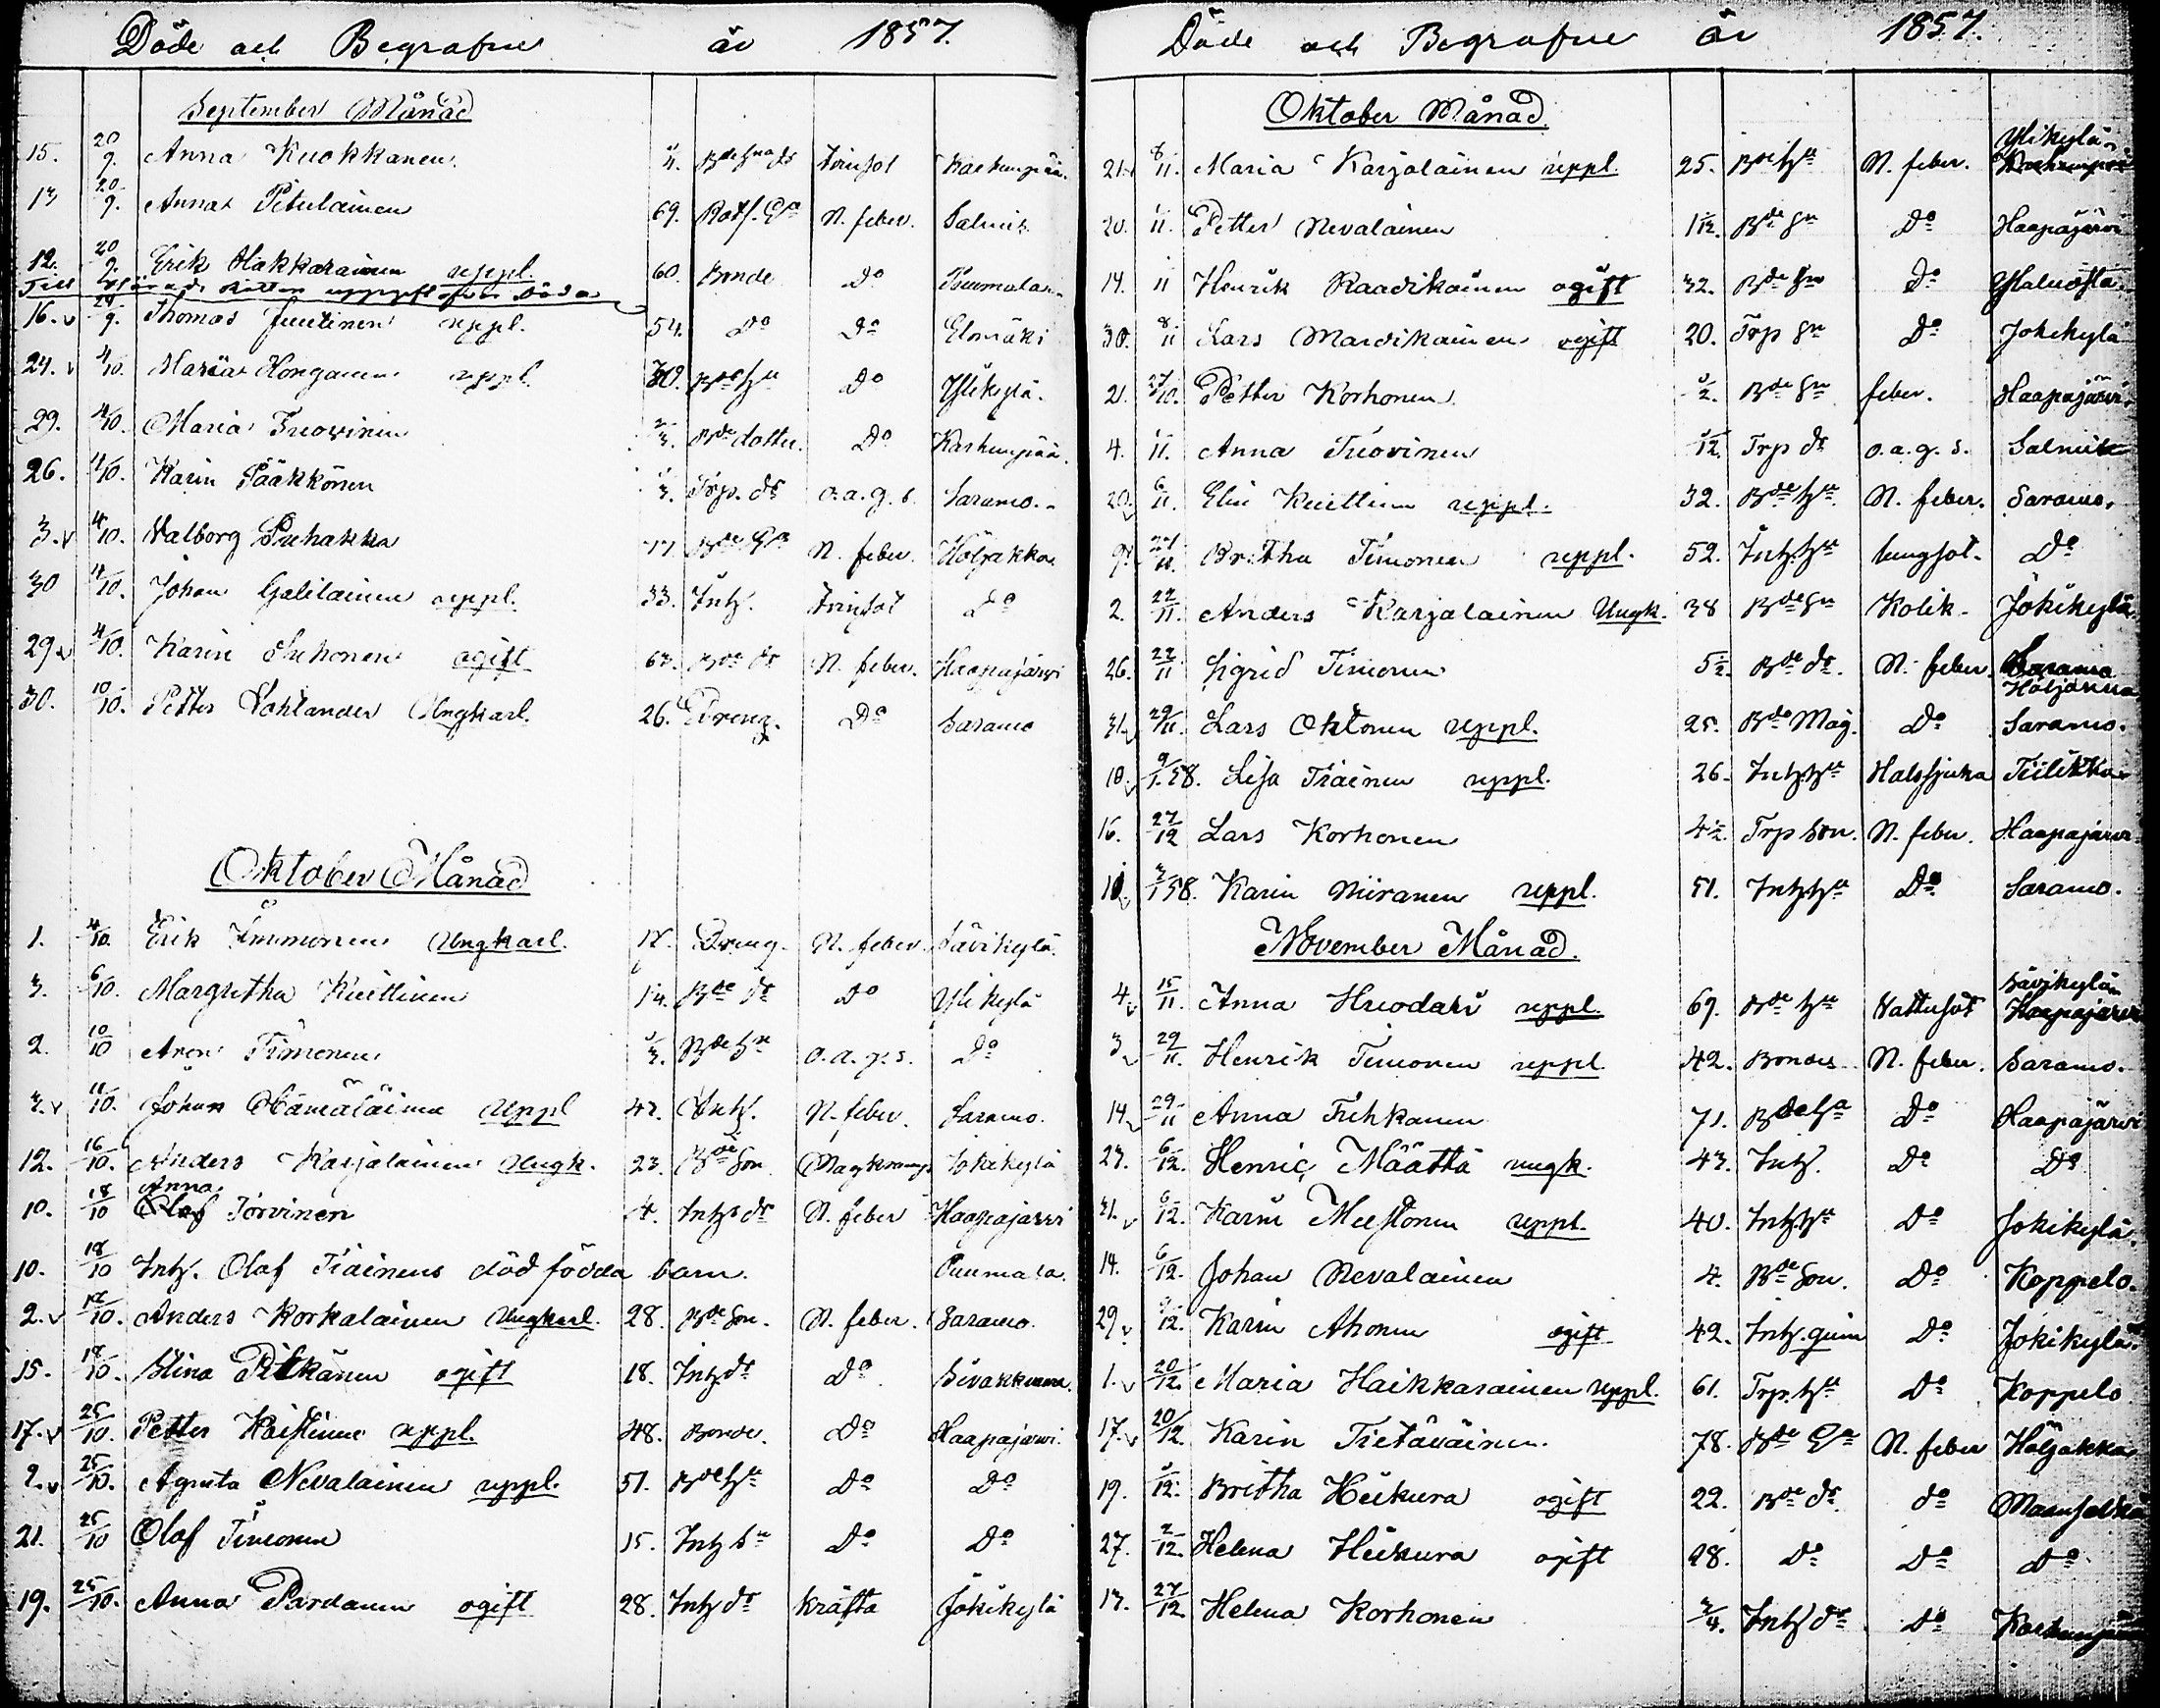 Döde och Begrafne år 1857.
September Månad
15. 20/9. Anna Kuokkanen. Karhunpää.
13 20/9. Anna Pitulainen 69. N. feber. Salmis.
12. 20/9. Erik Hakkarainen uppl. 60. Bonde Do Puumala
Till
16. v 29/9. Thomas Juutinen uppl. 54. Do Do Elomäki
24. v 4/10. Maria Honganen uppl. Bde hu Do Ylikylä.
29. 4/10. Maria Tuovinen 2/3. Bde dotter. Do Karhunpää.
26. 4/10. Karin Pääkkönen Trp. dr o.a.g.s. Saramo.
3. v 4/10. Walborg Puhakka N. feber. Höljakka
30 4/10. Johan Galilainen uppl. 33. Inh. Do
29 v 4/10. Karin Suhonen ogift 63. Bde dr N. feber. Haapajärvi
30. 10/10. Petter Vahlander Ungkarl. 26. Dreng. Do Saramo
Oktober Månad
1. 4/10. Erik Timonen Ungkarl. Dreng. N. feber. Savikylä.
3. 6/10. Margretha Kuittinen 14. Bde dr Do Ylikylä
2. 10/10 Aron Timonen Bde sn o.a.g.s. Do
3. v 11/10. Johan Hämäläinen uppl 43. Inh. N. feber. Saramo.
12. 16/10. Anders Karjalainen Ungk. 23. Bde Son Jokikylä
Anna
10. 18/10 Olof Torvinen 4. Inhs dr N. feber Haapajärvi
10. 18/10 Inh. Olof Tiainens död födda barn. Puumala.
2. v 18/10. Anders Korkalainen Ungkarl. 28. Bde Son. N. feber. Saramo.
15. 18/10. Stina Pitkänen ogift 18. Inh dr Do Sivakkavaara.
17. v 25/10. Petter Kaistinen uppl. 48. Bonde. Do Haapajärvi.
2. v 25/10. Agneta Nevalainen uppl. 51. Bde hu Do Do
21. 25/10 Olof Timonen 15. Inh sn Do Do
19. 25/10. Anna Pardanen ogift 28. Inh dr kräfta Jokikylä
Döde och Begrafne år 1857.
Oktober Månad.
Ylikylä
21. v 8/11. Maria Karjalainen uppl. 25. Bde hu N. feber. Karhunpää
20. 1/11. Petter Nevalainen 1 1/2. Bde sn Do Haapajärvi
14. 1/11 Henrik Raadikainen ogift 32. Bde sn Do
30. 8/11 Lars Mardikainen ogift 20. Trp sn Do Jokikylä
21. 27/10. Petter Korhonen 1/2. Bde sn feber. Haapajärvi.
4. 1/11. Anna Tuovinen 1/12. Trp dr o.a.g.s. Salmis
20. v 6/11. Elin Kuittinen uppl. 32. Bde hu N. feber. Saramo.
9. Britha Timonen uppl. 52. Inh hu lungsot. Do
2. 22/11. Anders Karjalainen Ungk. 38 Bde sn Kolik. Jokikylä.
26. 22/11 Sigrid Timonen 5 1/2. Bde dr. N. feber. Saramo
Höljakka
31. v 29/11. Lars Oktonen uppl. 25. Bde Måg. Do Saramo.
10. v 9/1.58. Lisa Tiainen uppl. 26. Inh hu Halssjuka Tiilikka
16. 27/12 Lars Korhonen 4 1/2. Trp Son. N. feber. Haapajärvi
10. v 3/1 58. Karin Niiranen uppl. 51. Inh hu Do Saramo.
November Månad.
Savikylä
4. v 15/11. Anna Huodari uppl. 69. Bde hu Vattusot Haapajärvi
3. v 29/11. Henrik Timonen uppl. 42. Bondes N. feber. Saramo.
14. v 29/11 Anna Tuhkanen 71. Do Haapajärvi
23. 6/12. Henric Määttä ungk. 43. Inh. Do Do
31. v 6/12. Karin Mustonen uppl. 40. Inh hu Do Jokikylä.
14. 6/12. Johan Nevalainen 4. Bde Son. Do Koppelo.
29. v 9/12. Karin Ahonen ogift 42. Inh. quin Do Jokikylä.
1. v 20/12. Maria Haikkarainen uppl. 61. Trp. hu Do Koppelo
17. v 20/12. Karin Tietäväinen. 78. Bde Ea N. feber Höljakka
19. 1/12. Britha Heikura ogift 22. Bde dr do Maanselkä
27. 2/12. Helena Heikura ogift 28. Do Do Do
13. 27/12. Helena Korhonen 3/4. Inh dr Do Karhunpää